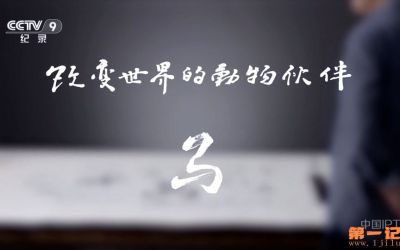 CCTV 9
纪录
改变世界的動物伙伴
马
中国IPT
第一记
www.1jilu